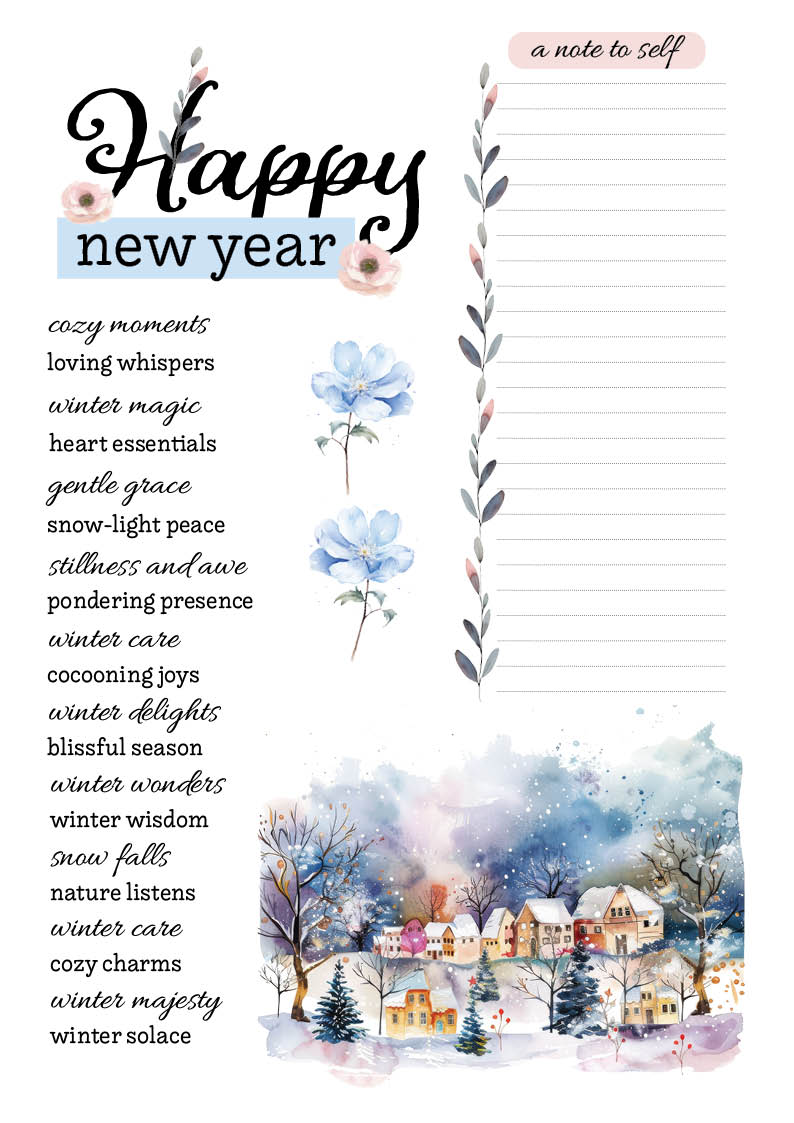 Happy
new year
cozy moments
loving whispers
winter magic
heart essentials
gentle grace
snow-light peace
stillness and awe
pondering presence
winter care
cocooning joys
winter delights
blissful season
winter wonders
winter wisdom
snow falls
nature listens
winter care
cozy charms
winter majesty
winter solace
a note to self